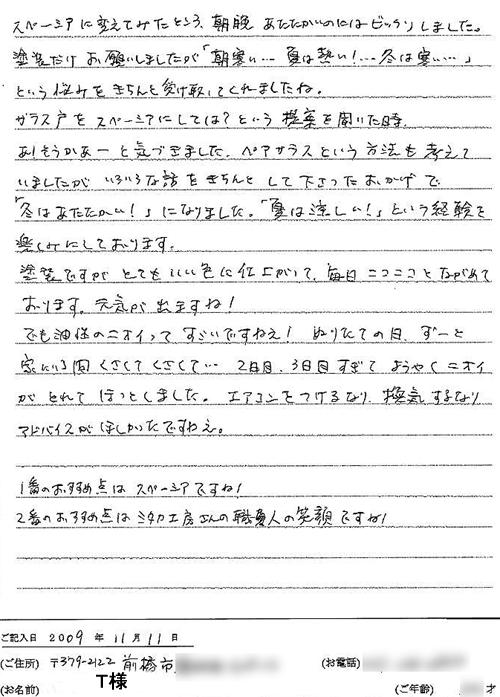 スペーシアに変えてみたところ、朝晩 あたたかいのにはビックリしました。
塗装だけ お願いしましたが「朝寒い… 夏は熱い!… 冬は寒い…」
という悩みを きちんと受け取ってくれましたね。
ガラス戸を スペーシアにしては?という 提案を聞いた時、
あ!そうかあーと気づきました。ペアガラスという方法も考えて
いましたが いろいろな話を きちんと して下さったおかげで
「冬はあたたかい!」になりました。「夏は涼しい!」という経験を
楽しみにしております。
塗装ですが とてもいい色に仕上がって、毎日ニコニコとながめて
おります。元気が 出ますね!
でも油性のニオイって すごいですねえ! ぬりたての日、ずーと
家にいる間 くさくてくさくて… 2日目、3日目すぎて ようやくニオイ
がとれて ほっとしました。エアコンをつけるなり、換気するなり
アドバイスが ほしかったですねえ。
1番のおすすめ点は スペーシアですね!
2番のおすすめ点は ミタカ工房さんの職人の笑顔ですね!
ご記入日 2009 年 11 月 11 日
(ご住所) 〒379-2122 前橋市 (お電話)
(お名前) T様 (ご年齢) 才